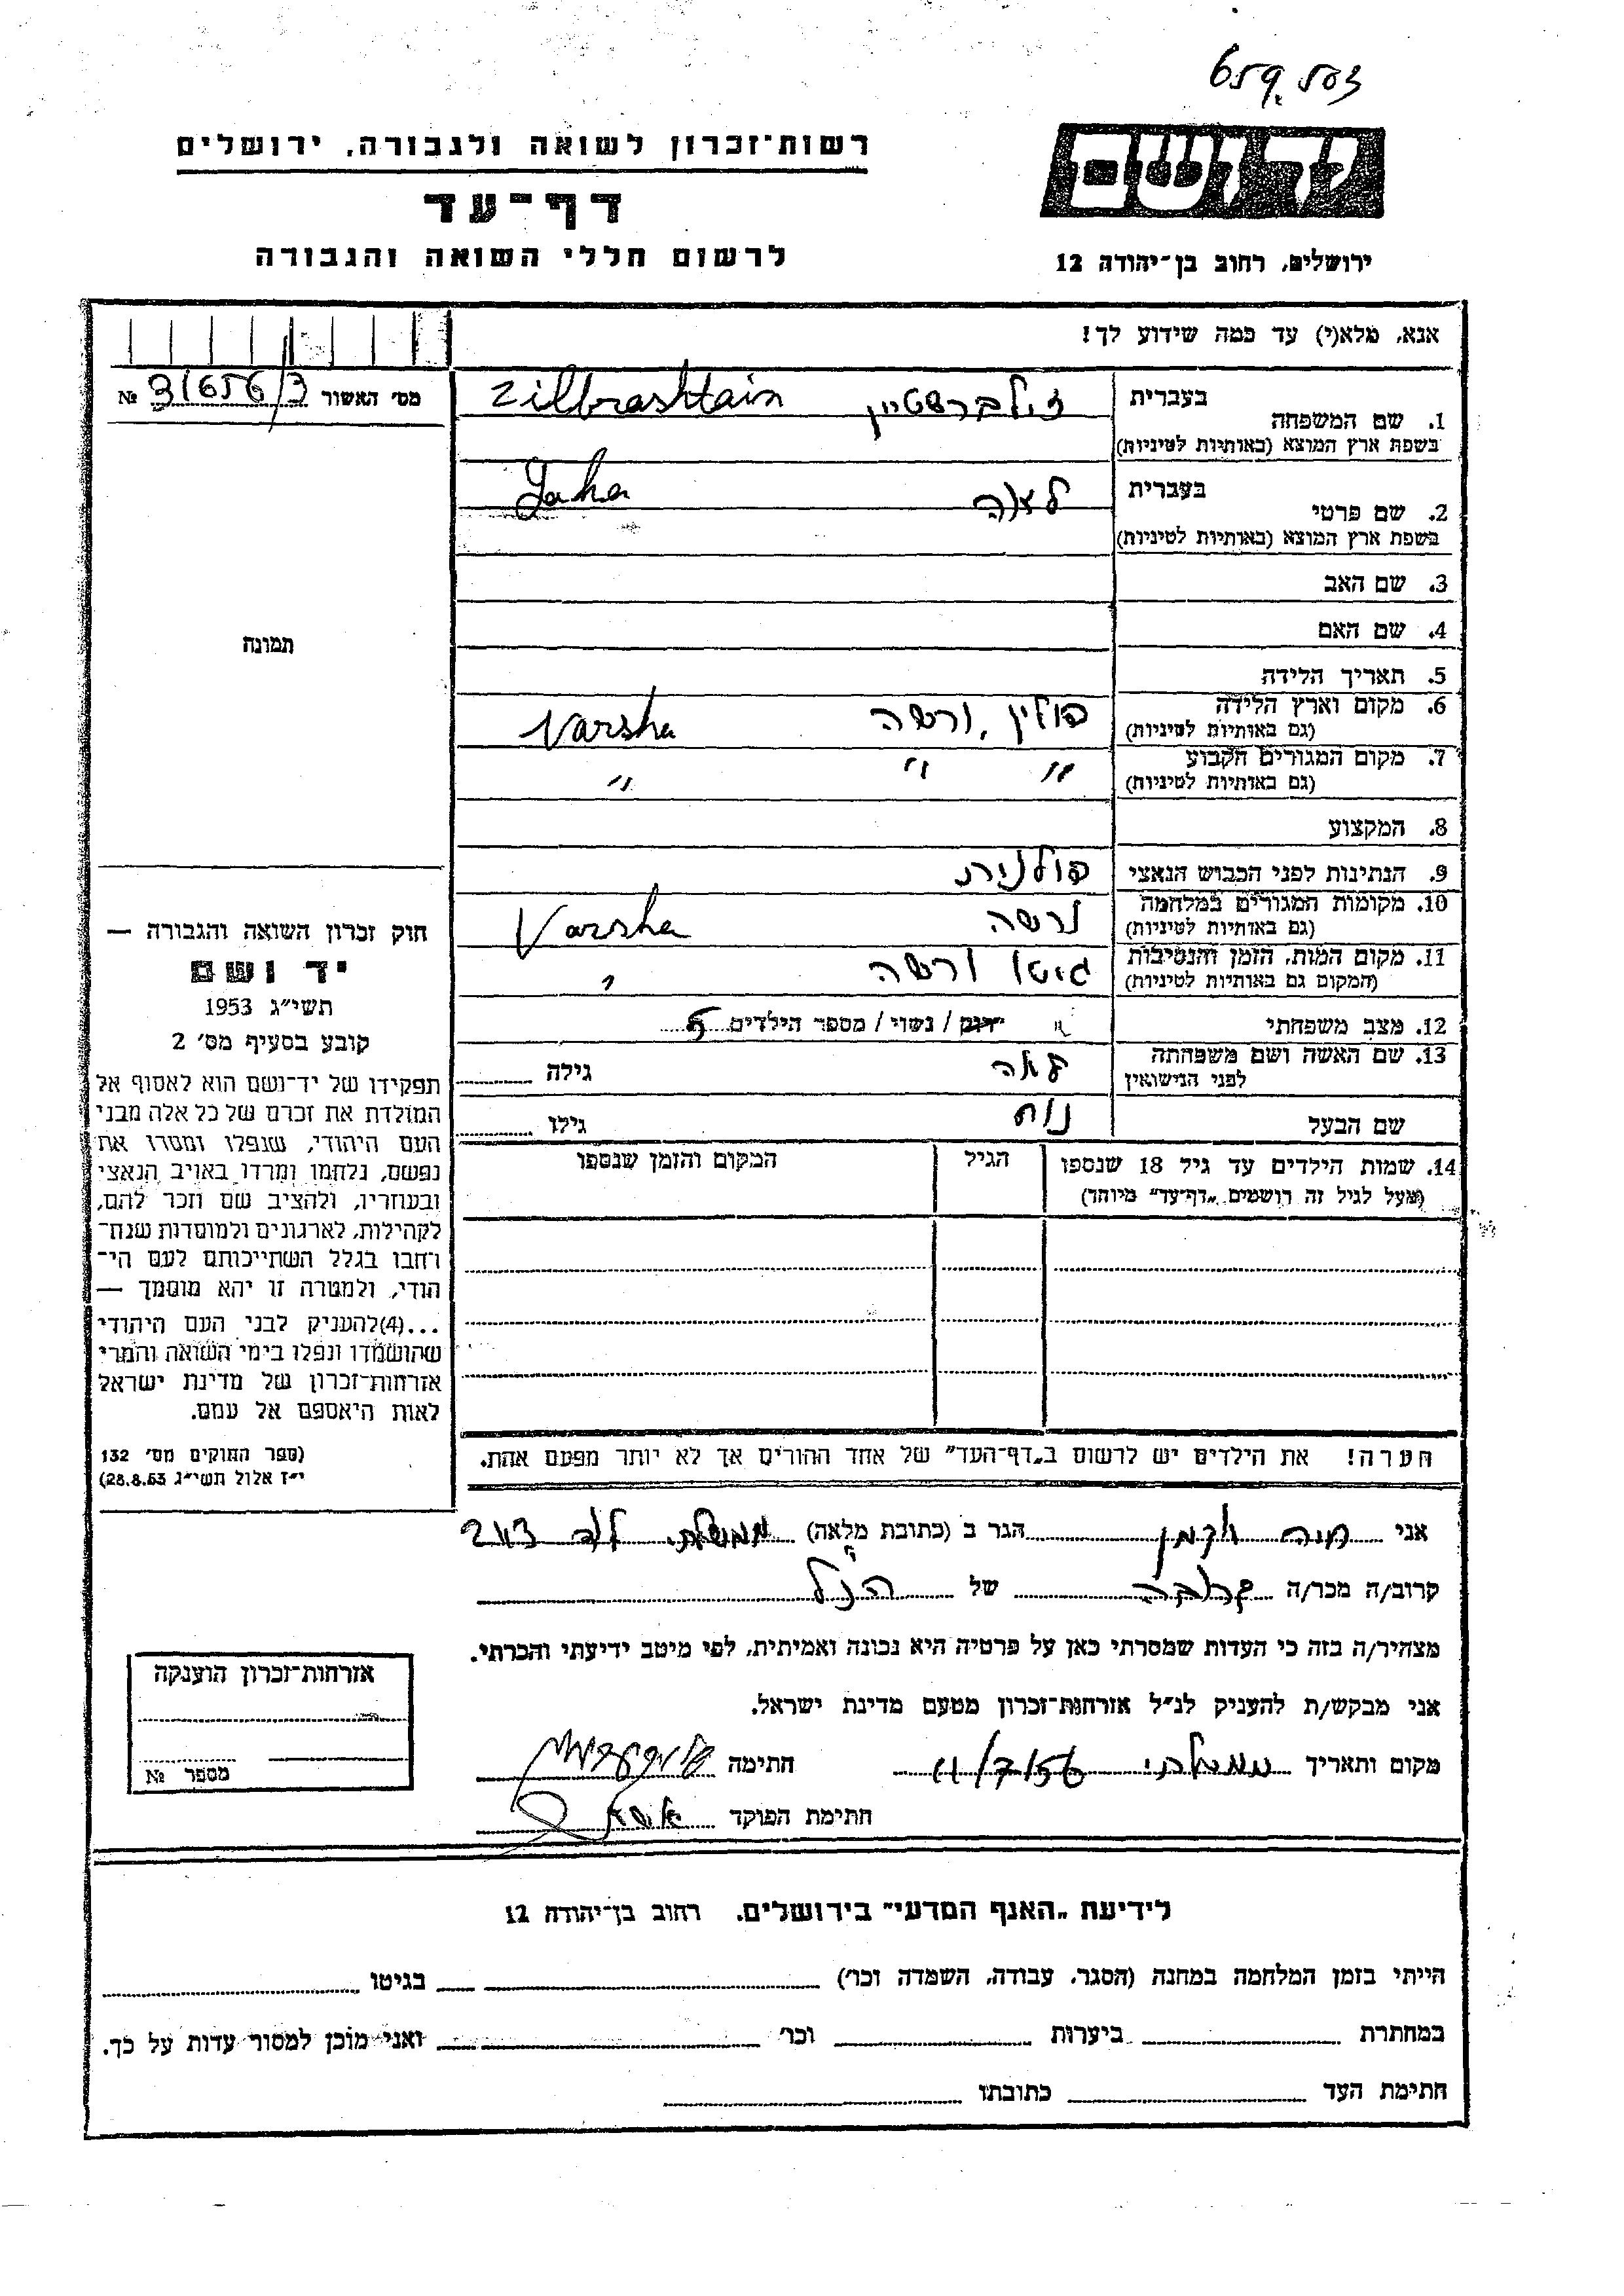 659.503
רשות־זכרון לשואה ולגבורה, ירושלים
דף־עד
לרשום חללי השואה והגבורה
ידושם
ירושלים, רחוב בן־יהודה 12
אנא, מלא(י) עד כמה שידוע לך!
מס׳ האשור № 31656/3
1. שם המשפחה
בעברית זילברשטיין Zilbrashtain
בשפת ארץ המוצא (באותיות לטיניות)
2. שם פרטי
בעברית לאה
בשפת ארץ המוצא (באותיות לטיניות)
3. שם האב
4. שם האם
תמונה
5. תאריך הלידה
6. מקום וארץ הלידה פולין, ורשה Varsha
(גם באותיות לטיניות)
7. מקום המגורים הקבוע " " "
(גם באותיות לטיניות)
8. המקצוע
9. הנתינות לפני הכבוש הנאצי פולנית
10. מקומות המגורים במלחמה ורשה Varsha
(גם באותיות לטיניות)
11. מקום המות, הזמן והנסיבות גיטו ורשה
(המקום גם באותיות לטיניות)
12. מצב משפחתי רווק / נשוי / מספר הילדים 5
13. שם האשה ושם משפחתה לאה גילה
לפני הנישואין
שם הבעל נוח גילו
14. שמות הילדים עד גיל 18 שנספו הגיל המקום והזמן שנספו
(מעל לגיל זה רושמים „דף־עד” מיוחד)
חוק זכרון השואה והגבורה —
יד ושם
תשי״ג 1953
קובע בסעיף מס׳ 2
תפקידו של יד־ושם הוא לאסוף אל
המולדת את זכרם של כל אלה מבני
העם היהודי, שנפלו ומסרו את
נפשם, נלחמו ומרדו באויב הנאצי
ובעוזריו, ולהציב שם וזכר להם,
לקהילות, לארגונים ולמוסדות שנח־
רחבו בגלל השתייכותם לעם הי־
הודי, ולמטרה זו יהא מוסמך —
...(4)להעניק לבני העם היהודי
שהושמדו ונפלו בימי השואה והמרי
אזרחות־זכרון של מדינת ישראל
לאות היאספם אל עמם.
(ספר החוקים מס׳ 132
י״ז אלול תשי״ג 28.8.53)
הערה! את הילדים יש לרשום ב„דף־העד” של אחד ההורים אך לא יותר מפעם אחת.
אני חנה הגר ב (כתובת מלאה) 243
קרוב/ה מכר/ה קרובה של הנ״ל
מצהיר/ה בזה כי העדות שמסרתי כאן על פרטיה היא נכונה ואמיתית, לפי מיטב ידיעתי והכרתי.
אני מבקש/ת להעניק לנ״ל אזרחות־זכרון מטעם מדינת ישראל.
מקום ותאריך 11/7/56 חתימה
חתימת הפוקד
אזרחות־זכרון הוענקה
מספר №
לידיעת „האנף המדעי” בירושלים. רחוב בן־יהודה 12
הייתי בזמן המלחמה במחנה (הסגר, עבודה, השמדה וכו׳) בגיטו
במחתרת ביערות וכו׳ ואני מוכן למסור עדות על כך.
חתימת העד כתובתו